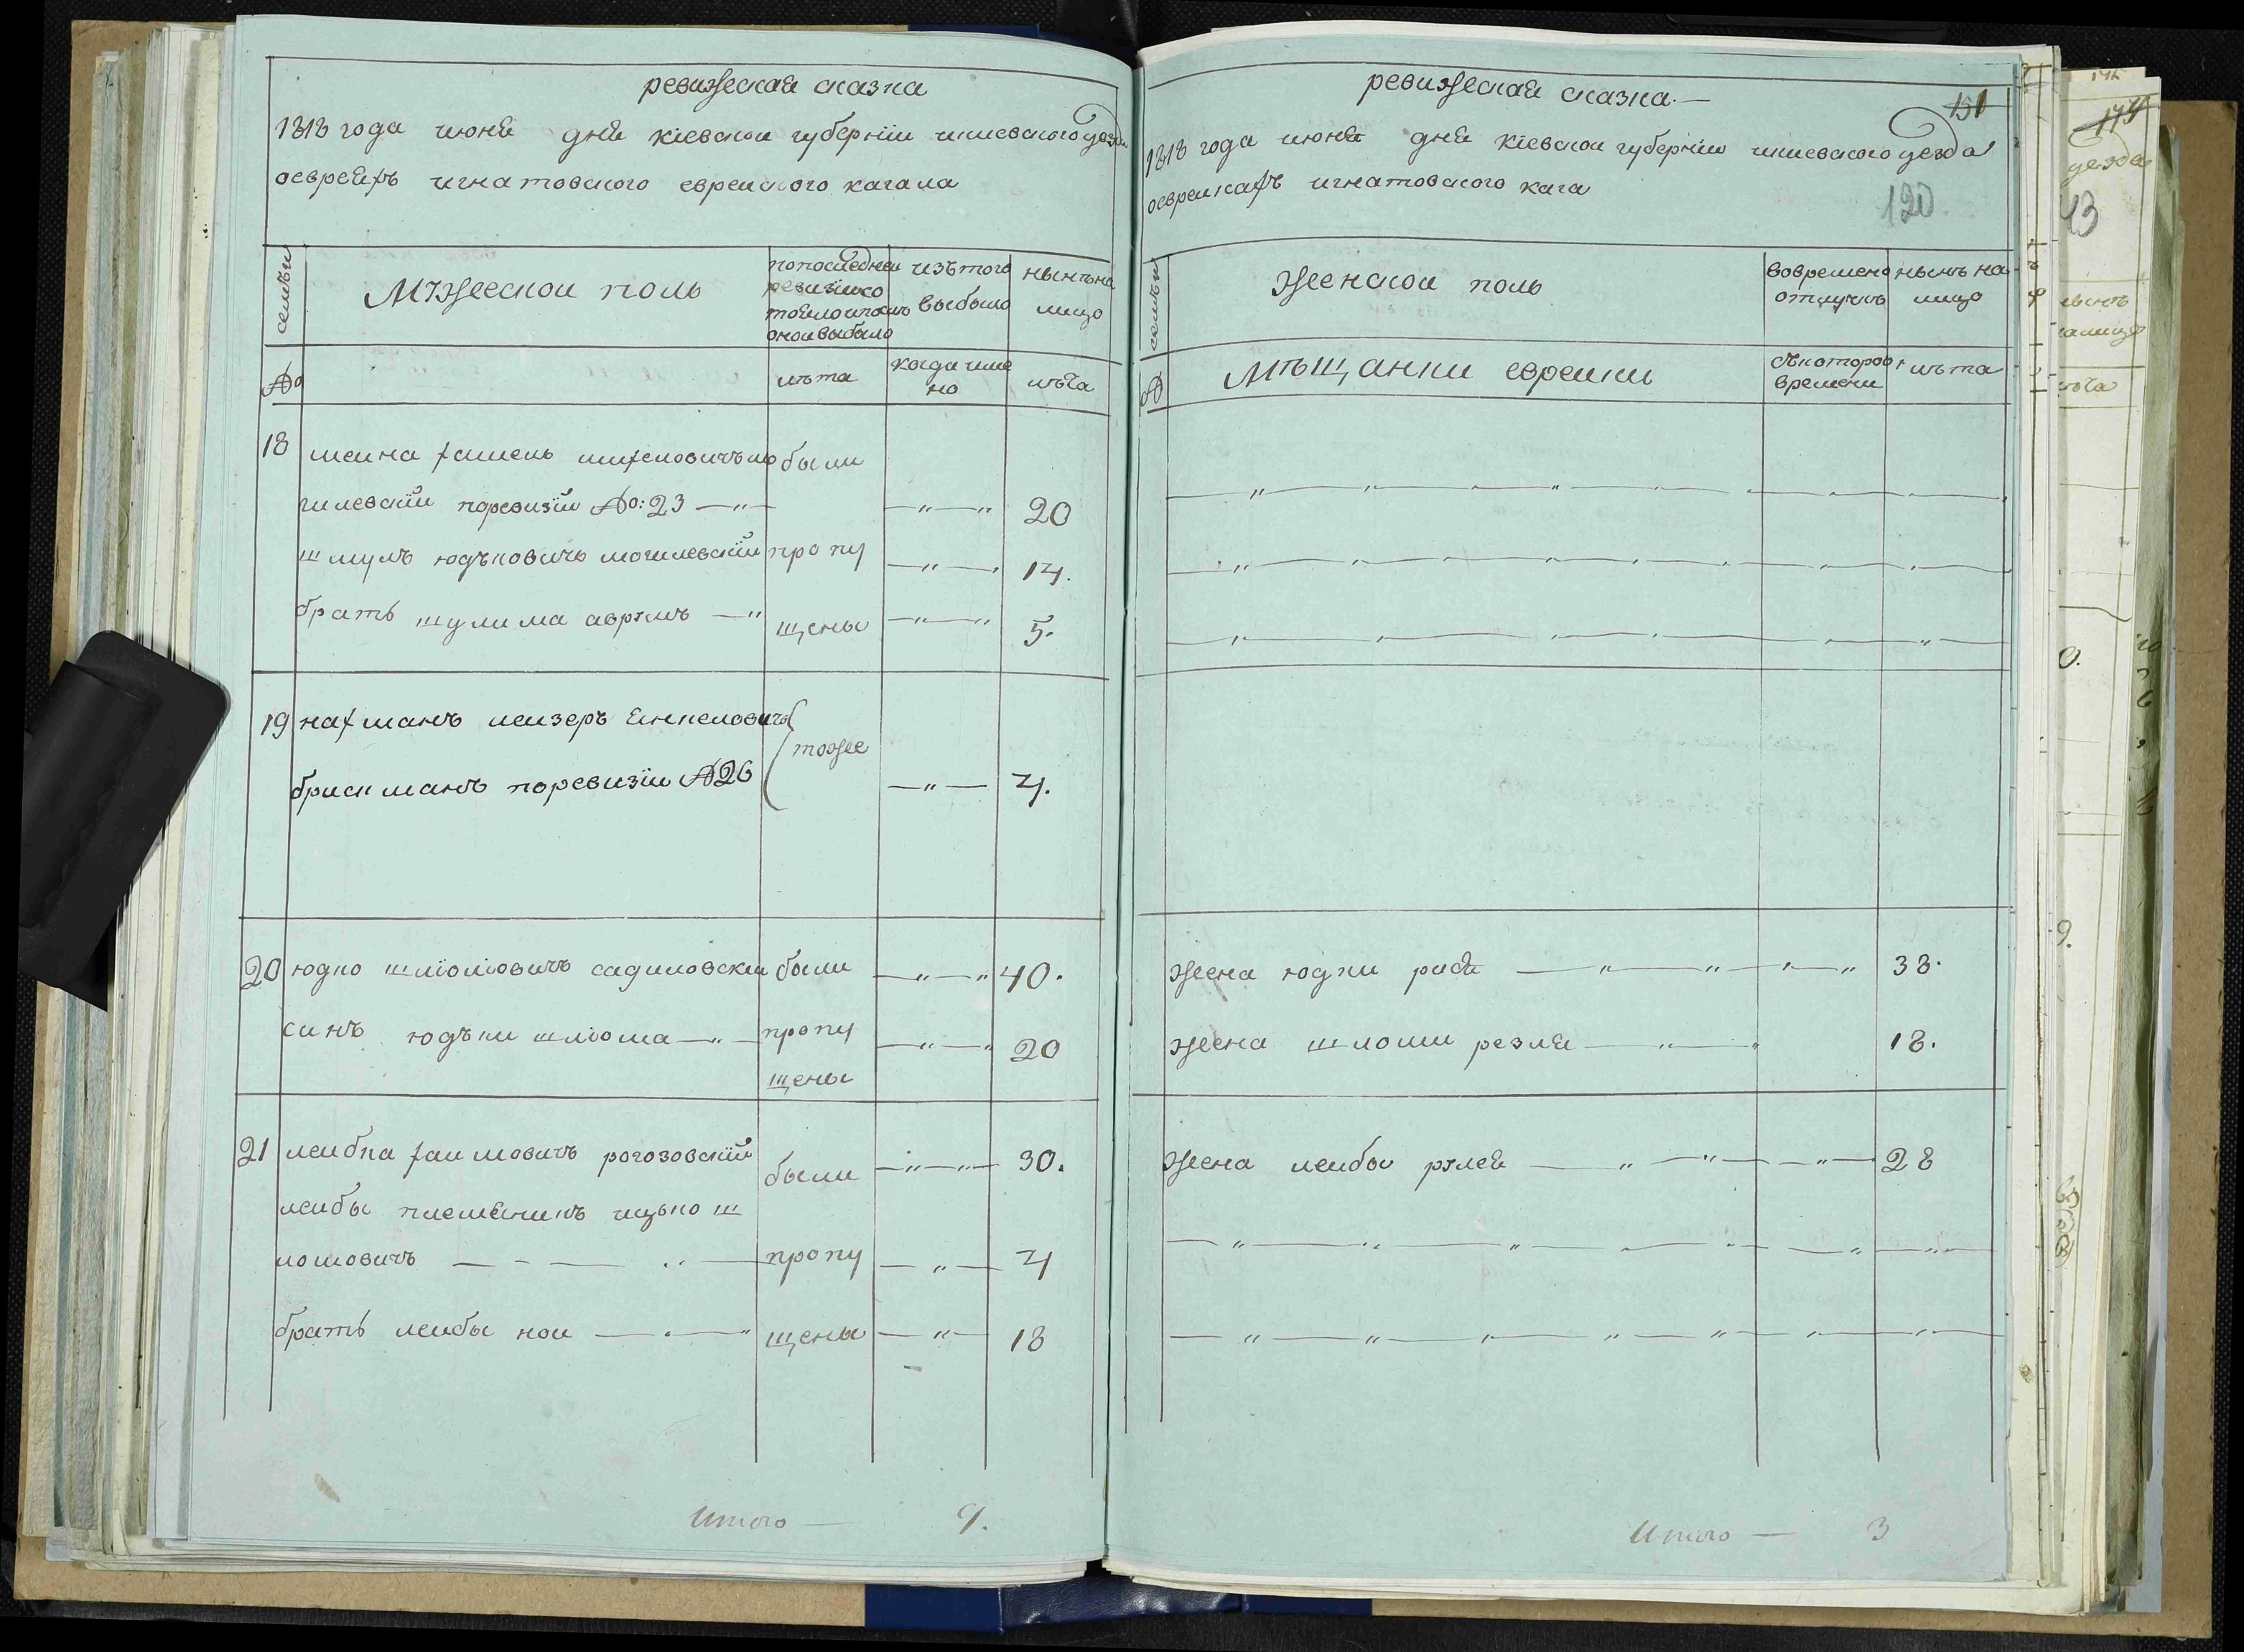 ревижеская сказка
1818 года июня дня кіевскои губерніи икиевского уезда
оевреяхъ игнатовского евреиского кагала
семьи
Мужескои поль
попоследнеи
ревизіи со
онои выбыло
изътого
выбыло
нынѣна
лицо
№
лѣта
когда име
но
лѣта
18 леина хаимель михелевичъ мо были
гилевскіи поревизіи №: 23 — 20
шмулъ юдъковичъ могилевскіи пропу 14.
братъ шулима аврумъ — щены 5.
19 нахманъ леизеръ янкеловичъ
тоже
брискманъ поревизіи №26 — 4.
20 юдко шліоміовичъ садиловскіи были 40.
синъ юдъки шліома — пропу 20
щены
21 леибка хаимовичъ рогозовскіи были 30.
леибы племяникъ ицько ш
ломовичъ — пропу 4
братъ леибы нои — щены 18
Итого — 9.
ревижеская сказка.—
151
1818 года июня дня кіевскои губерніи икиевского уезда
оевреикахъ игнатовского кага
120
семьи
Женскои поль
вовремено
отлучкѣ
нынѣ на
лицо
№
Мѣщанки евреики
съкоторого
времени
лѣта
жена юдки рися — 38.
жена шломи резля — 18.
жена леибы рухлея — 28
Итого — 3
уезда
43